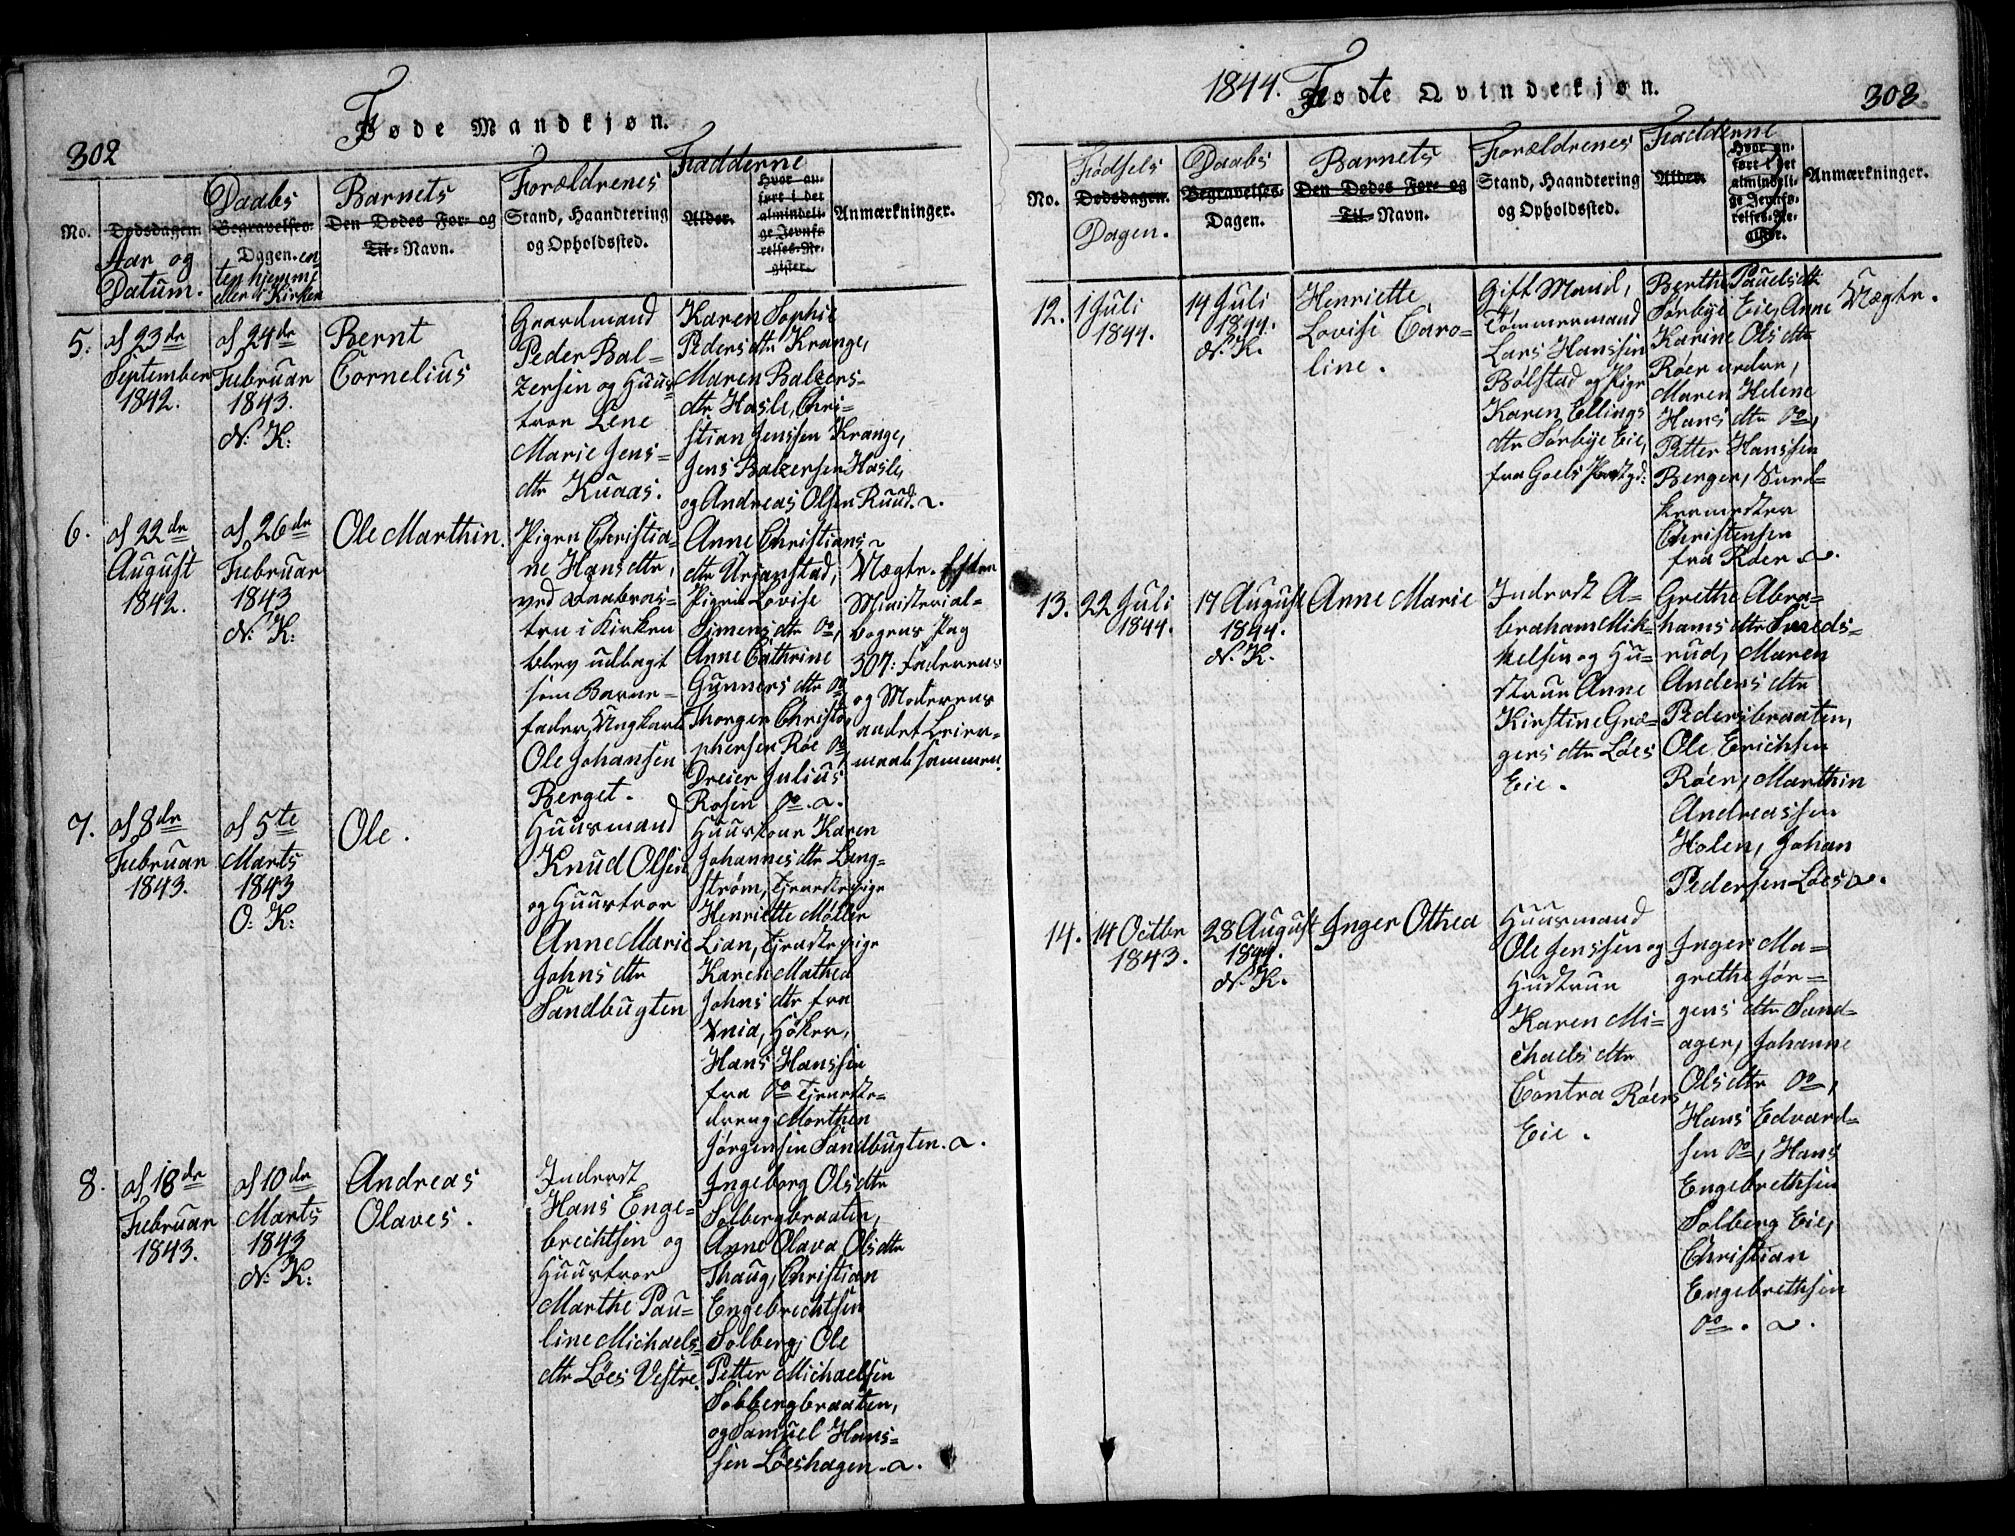 302
Føde Mandkjøn.
No.
Dødsdagen
Aar og
Datum.
Daabs
Begravelses-
Dagen. en-
ten hjemme
eller i Kirken
Barnets
Den Dødes For- og
Til- Navn.
Forældrenes
Stand, Haandtering
og Opholdssted.
Fadderne
Alder.
Hvor an-
ført i det
almindeli-
ge Jevnfø-
relses-Re-
gister.
Anmærkninger.
5.
af 23de
September
1842.
af 24de
Februar
1843.
N. K:
Bernt
Cornelius
Gaardmand
Peder Bal-
zersen og Huus-
trøe Lene
Marie Jens-
dtr Kuaas.
Karen Sophie
Peders dtr Krange,
Maren Balzers-
dtr Hasle, Chri-
stian Jenssen Krange,
Jens Balzersen Hasle,
og Andreas Olsen Ruud. a.
6.
af 22de
August
1842.
af 26de
Februar
1843
N. K:
Ole Marthin.
Pigen Christia-
ne Hans dtr,
ved
i Kirken
blev udlagt
som Barne-
fader, Ungkarl
Ole Johansen
Berget.
Anne Christians
dtr Urianstad,
Pigen Lovise
Simens dtr Do,
Anne Cathrine
Gunners dtr Do
Thorger Christo-
phersen Røe Do
Dreier Julius
Rosen Do. a.
Vægtr. Efter
Ministerial-
bogens Pag
307: Faderens
og Moderens
andet Leier-
maal sammen.
7.
af 8de
Februar
1843.
af 5te
Marts
1843
O. K:
Ole.
Huusmand
Knud Olsen
og Huustroe
Anne Marie
Johns dtr
Sandbugten
Huustroe Karen
Johannes dtr Lang-
strøm, Tjenestepige
Henriette Møller
Lian, Tjenestepige
Karen Mathea
Johns dtr fra
Høker,
Hans Hanssen
fra Do Tjeneste-
dreng Morthen
Jørgensen Sandbugten. a.
8.
af 18de
Februar
1843.
af 10de
Marts
1843
N. K:
Andreas
Olaves.
Inderst
Hans Enge-
brechtsen og
Huustroe
Marthe Pau-
line Michaels-
dtr Løes Vestre.
Ingeborg Olsdtr
Solbergbraaten,
Anne Olava Olsdtr
Thaug, Christian
Engebrechtsen
Solberg, Ole
Petter Michaelsen
Solbergbraaten,
og Samuel Hans-
sen Løeshagen. a.
1844. Fødte Qvindekjøn.
303
No.
Fødsels
Dødsdagen.
Dagen.
Daabs
Begravelses-
Dagen.
Barnets
Den Dødes Fore- og
Til- Navn.
Forældrenes
Stand, Haandtering
og Opholdssted.
Fadderne
Alder
Hvor an-
ført i det
almindeli-
ge Jevnfø-
relses-Re-
gister.
Anmærkninger.
12.
1 Juli
1844.
14 Juli
1844.
N. K.
Henriette
Lovise Caro-
line.
Gift Mand,
Tømmermand
Lars Hanssen
Bølstad og Pige
Karen Ellings
dtr Sørbye Eie,
fra Præstgd:
Berthe Paulsdtr
Sørbye Eie, Anne
Karine Ols dtr
Røer
Maren Helene
Hans dtr Do,
Petter Hanssen
Berger,
Christensen
fra Røer a.
Vægtr.
13.
22 Juli
1844.
17 August
1844.
N. K.
Anne Marie
Inderst A-
braham Mik-
kelsen og Hu-
strue Anne
Kirstine Gre-
gers dtr Løes
Eie.
Grethe Abra-
hams dtr Smeds-
rud, Maren
Anders dtr
Pedersbraaten,
Ole Erichsen
Røer, Marthin
Andreassen
Holen, Johan
Pedersen Løes a.
14.
14 Octbr
1843.
28 August
1844.
N. K.
Inger Othea
Huusmand
Ole Jenssen og
Hustrue
Karen Mi-
chaels dtr
Contra Røers
Eie.
Inger Ma-
grethe Jør-
gens dtr Sand-
ager, Johanne
Olsdtr Do,
Hans Edvard-
sen Do, Hans
Engebrethsen
Solberg Eie,
Christian
Engebrethsen
Do. a.